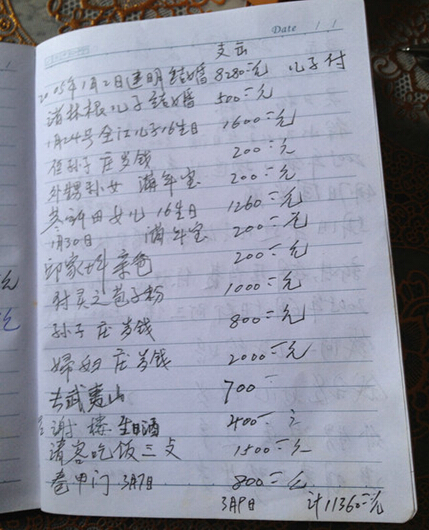 Date
支出
2005年1月2日建明结婚 8280=元 儿子付
诸林根儿子结婚 500=元
1月24号金江儿子16生日 1600=元
任孙子压岁钱 200=元
外甥孙女 满年宝 200=元
田女儿16生日 1260=元
1月30日 满年宝 200=元
邱家 亲爸 200=元
灵芝孢子粉 1000=元
孙子压岁钱 800=元
媳妇压岁钱 2000=元
去武夷山 700=
谢 楼 生日酒 400=元
请客吃饭三支 1500=元
卷甲门 3月7日 800=元
3月9日 计11360=元